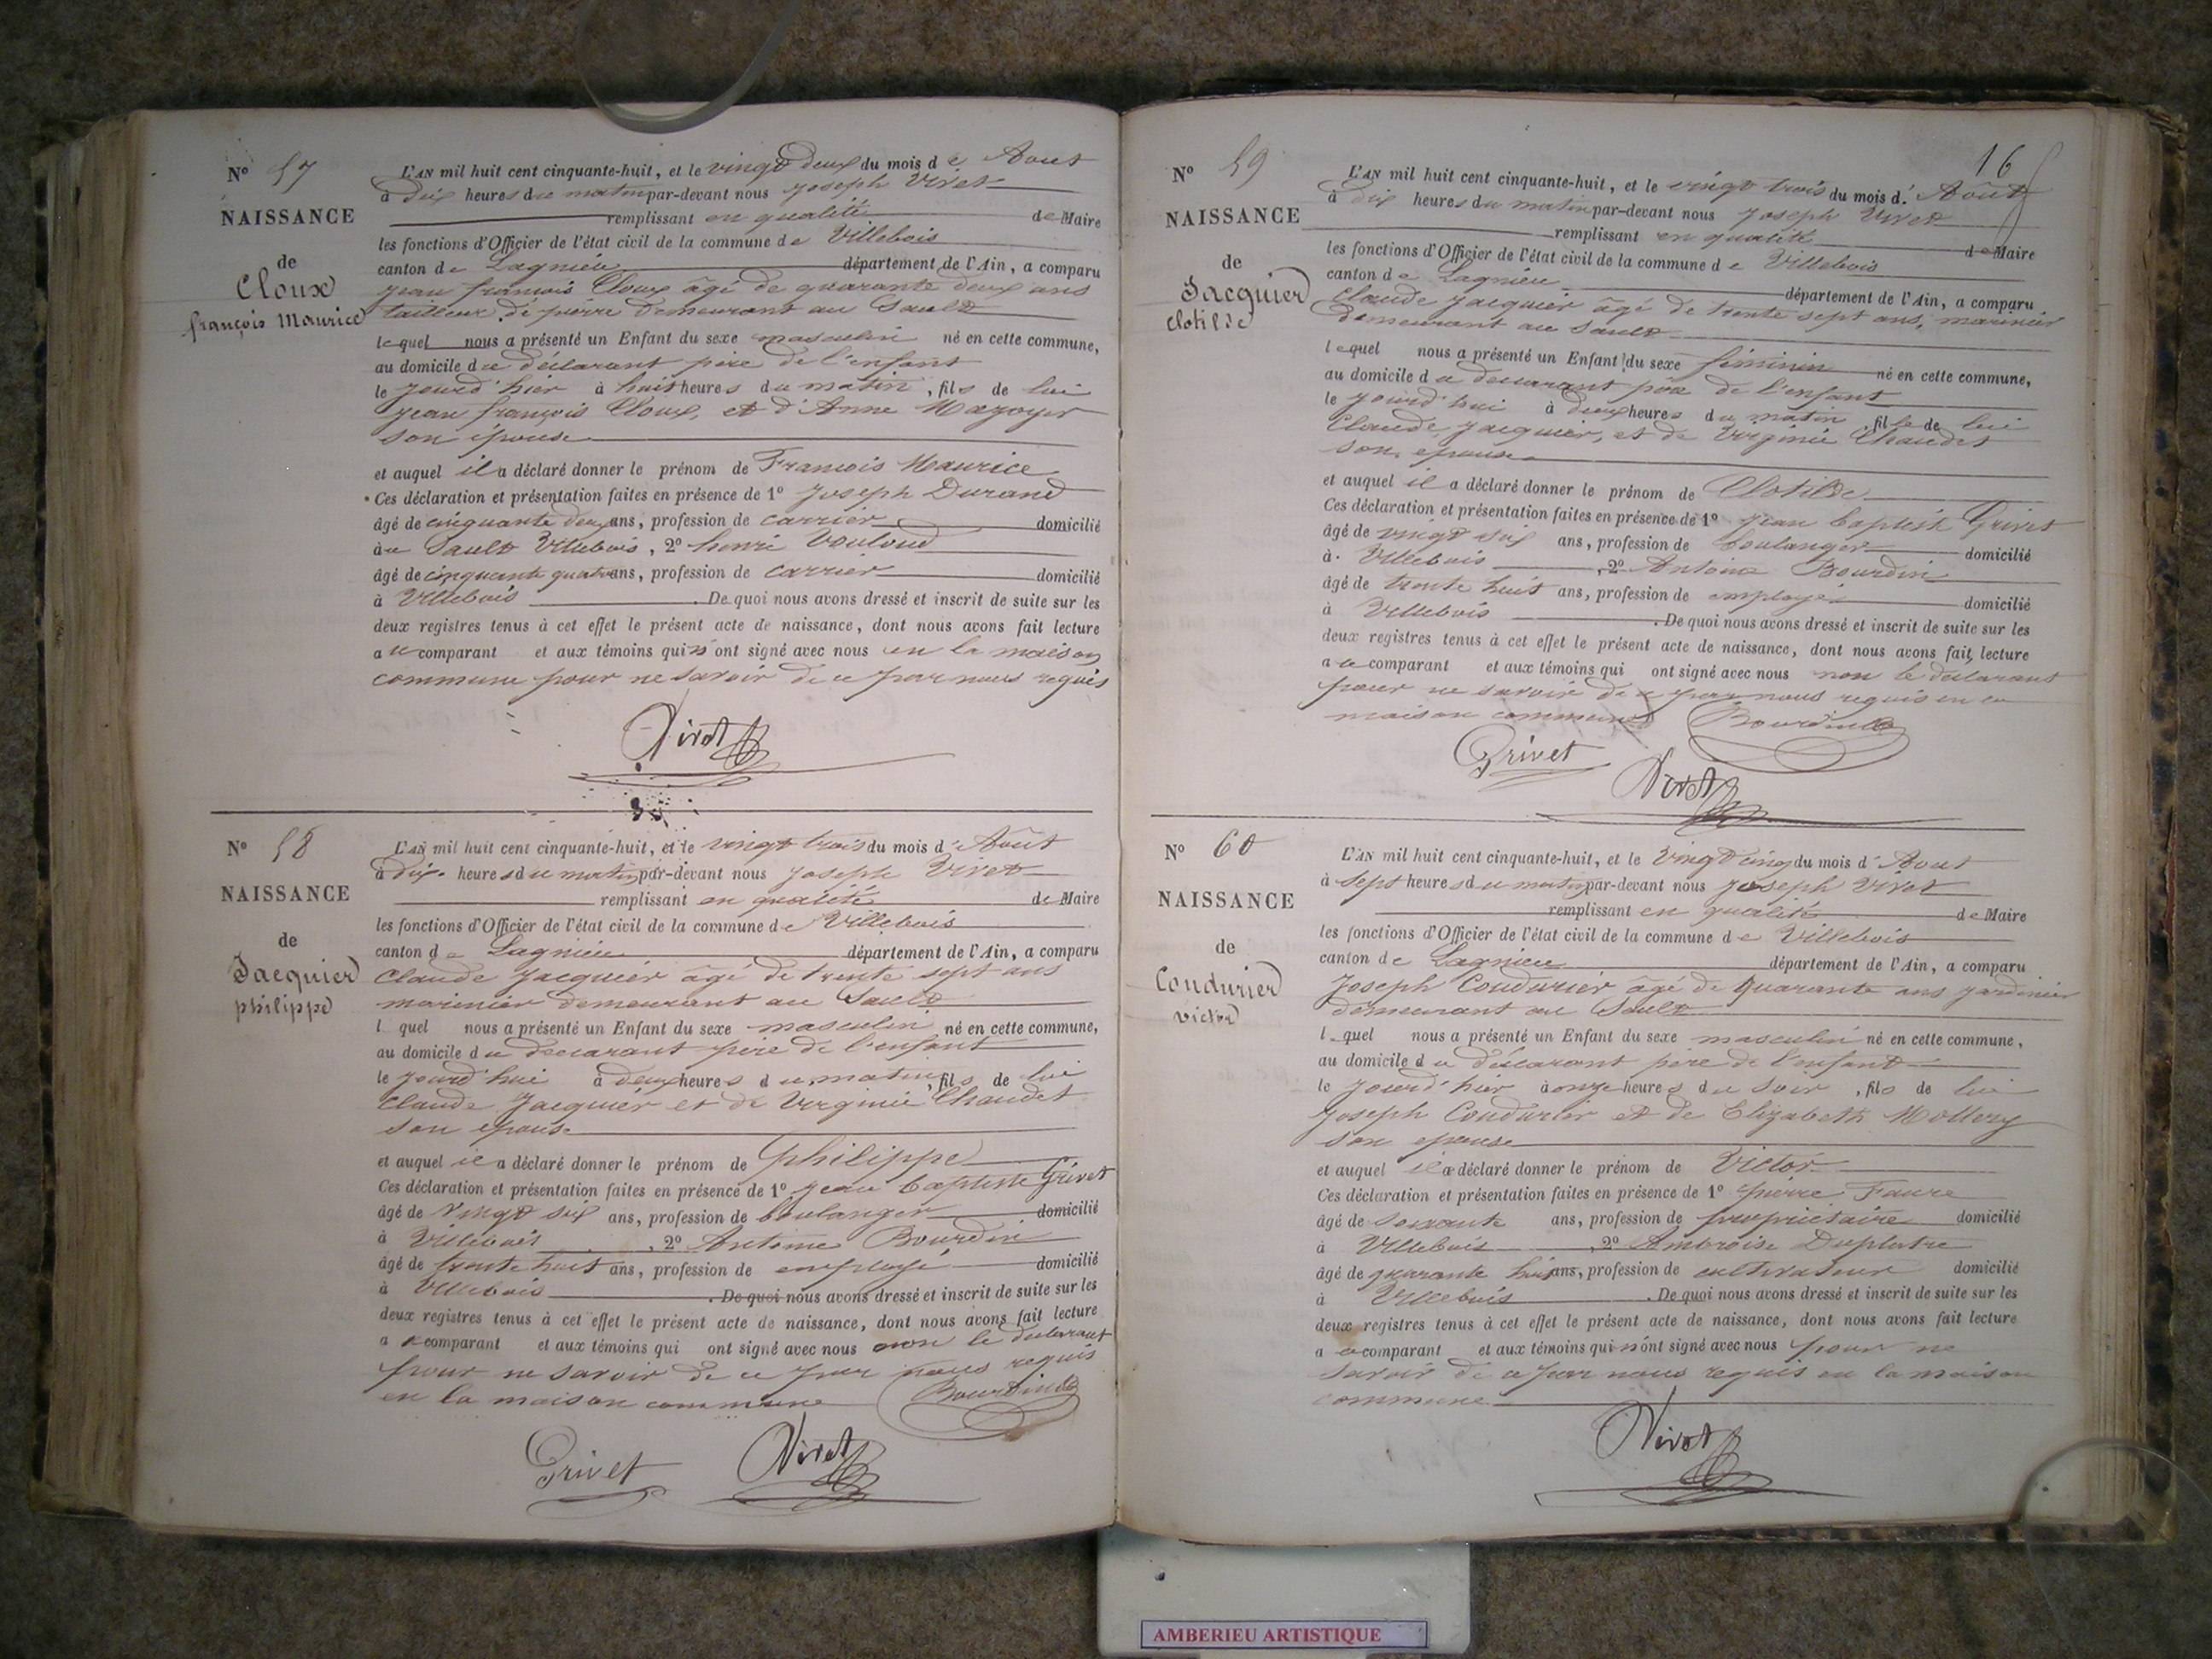 N° 57
NAISSANCE
de
Cloux
françois Maurice
L'AN mil huit cent cinquante-huit, et le vingt deux du mois de Aout
à dix heures du matin par-devant nous Joseph Vivet
remplissant en qualité de Maire
les fonctions d'Officier de l'état civil de la commune de Villebois
canton de Lagnieu département de l'Ain, a comparu
Jean françois Cloux âgé de quarante deux ans
tailleur de pierre demeurant au Sault
lequel nous a présenté un Enfant du sexe masculin né en cette commune,
au domicile du déclarant père de l'enfant
le jourd'hier à huit heures du matin, fils de lui
Jean françois Cloux, et d'Anne Mazoyer
son épouse
et auquel il a déclaré donner le prénom de François Maurice
Ces déclaration et présentation faites en présence de 1° Joseph Durand
âgé de cinquante deux ans, profession de carrier domicilié
au Sault Villebois, 2° henri Vouloud
âgé de cinquante quatre ans, profession de carrier domicilié
à Villebois. De quoi nous avons dressé et inscrit de suite sur les
deux registres tenus à cet effet le présent acte de naissance, dont nous avons fait lecture
au comparant et aux témoins qui n'ont signé avec nous en la maison
commune pour ne savoir de ce par nous requis
Vivet
N° 58
NAISSANCE
de
Jacquier
philippe
L'AN mil huit cent cinquante-huit, et le vingt trois du mois d'Août
à dix heures du matin par-devant nous Joseph Vivet
remplissant en qualité de Maire
les fonctions d'Officier de l'état civil de la commune de Villebois
canton de Lagnieu département de l'Ain, a comparu
Claude Jacquier âgé de trente sept ans
marinier demeurant au Sault
l quel nous a présenté un Enfant du sexe masculin né en cette commune,
au domicile du déclarant père de l'enfant
le jourd'hui à deux heures du matin, fils de lui
Claude Jacquier et de Virginie Chaudet
son épouse
et auquel il a déclaré donner le prénom de philippe
Ces déclaration et présentation faites en présence de 1° Jean baptiste Grivet
âgé de vingt six ans, profession de boulanger domicilié
à Villebois, 2° Antoine Bourdin
âgé de trente huit ans, profession de employé domicilié
à Villebois. De quoi nous avons dressé et inscrit de suite sur les
deux registres tenus à cet effet le présent acte de naissance, dont nous avons fait lecture
a comparant et aux témoins qui ont signé avec nous non le déclarant
pour ne savoir de ce par nous requis
en la maison commune Bourdin
Grivet Vivet
16
N° 59
NAISSANCE
de
Jacquier
Clotilde
L'AN mil huit cent cinquante-huit, et le vingt trois du mois d'Août
à dix heures du matin par-devant nous Joseph Vivet
remplissant en qualité de Maire
les fonctions d'Officier de l'état civil de la commune de Villebois
canton de Lagnieu département de l'Ain, a comparu
Claude Jacquier âgé de trente sept ans, marinier
demeurant au Sault
lequel nous a présenté un Enfant du sexe féminin né en cette commune,
au domicile du déclarant père de l'enfant
le jourd'hui à deux heures du matin, fille de lui
Claude Jacquier, et de Virginie Chaudet
son épouse
et auquel il a déclaré donner le prénom de Clotilde
Ces déclaration et présentation faites en présence de 1° Jean baptiste Grivet
âgé de vingt six ans, profession de boulanger domicilié
à Villebois, 2° Antoine Bourdin
âgé de trente huit ans, profession de employé domicilié
à Villebois. De quoi nous avons dressé et inscrit de suite sur les
deux registres tenus à cet effet le présent acte de naissance, dont nous avons fait lecture
au comparant et aux témoins qui ont signé avec nous non le déclarant
pour ne savoir de ce par nous requis en la
maison commune Bourdin
Grivet
Vivet
N° 60
NAISSANCE
de
Coudurier
victor
L'AN mil huit cent cinquante-huit, et le vingt cinq du mois d'Aout
à sept heures du matin par-devant nous Joseph Vivet
remplissant en qualité de Maire
les fonctions d'Officier de l'état civil de la commune de Villebois
canton de Lagnieu département de l'Ain, a comparu
Joseph Coudurier âgé de quarante ans jardinier
demeurant au Sault
l quel nous a présenté un Enfant du sexe masculin né en cette commune,
au domicile du déclarant père de l'enfant
le jourd'hier à onze heures du soir, fils de lui
Joseph Coudurier et de Elizabeth Mollery
son épouse
et auquel il a déclaré donner le prénom de Victor
Ces déclaration et présentation faites en présence de 1° pierre Faure
âgé de soixante ans, profession de propriétaire domicilié
à Villebois, 2° Ambroise Duplatre
âgé de quarante huit ans, profession de cultivateur domicilié
à Villebois. De quoi nous avons dressé et inscrit de suite sur les
deux registres tenus à cet effet le présent acte de naissance, dont nous avons fait lecture
au comparant et aux témoins qui n'ont signé avec nous pour ne
savoir de ce par nous requis en la maison
commune
Vivet
AMBERIEU ARTISTIQUE